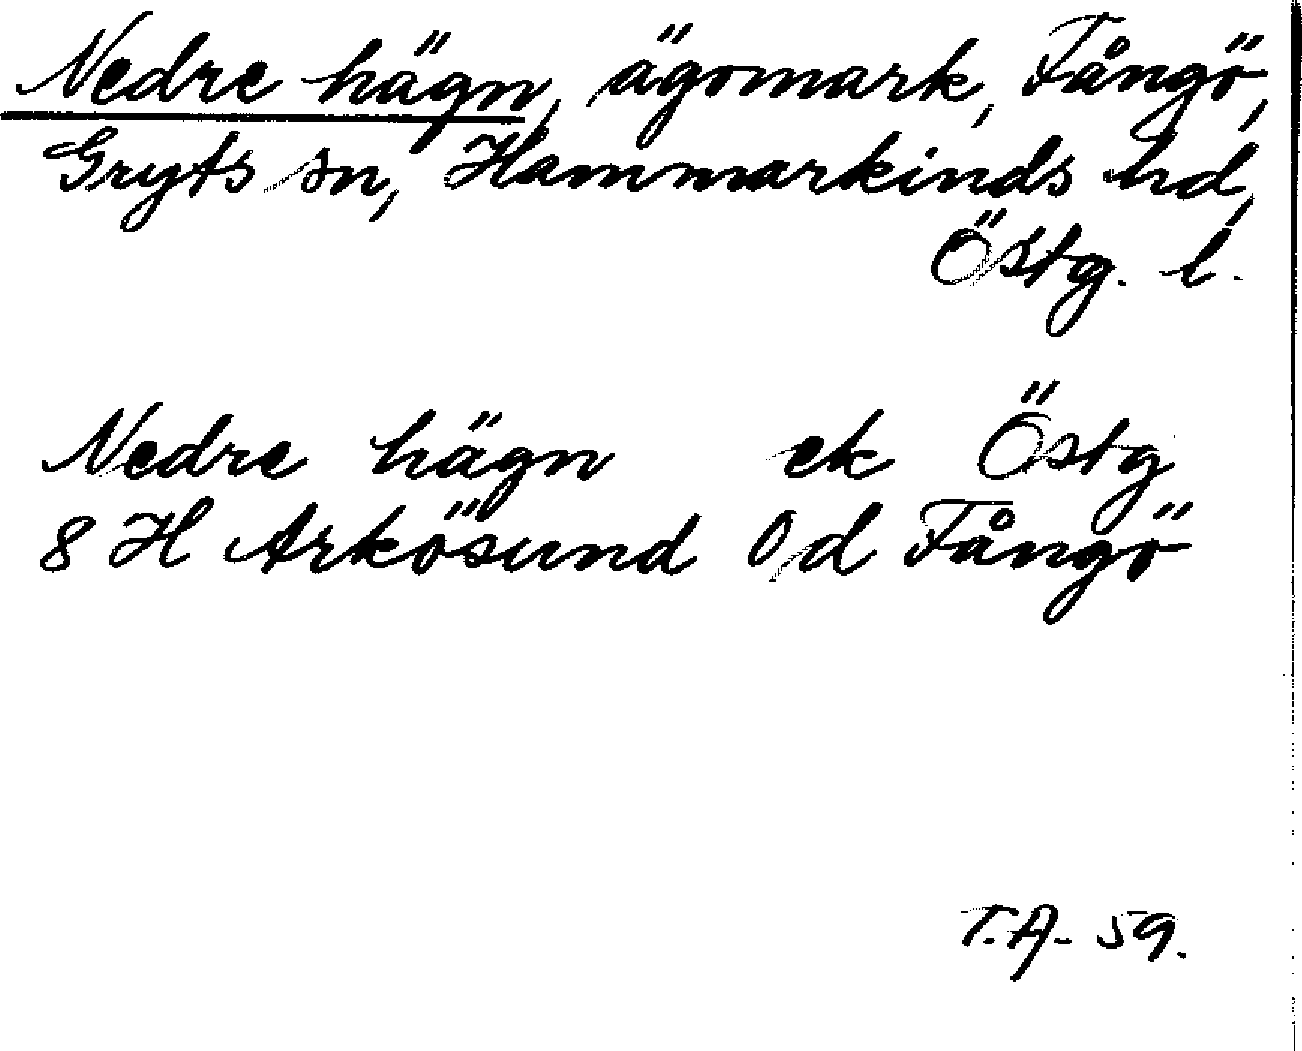 Nedre hägn, ägomark, Fångö,
Gryts sn, Hammarkinds hd,
Östg. l.
Nedre hägn ek Östg
8 H Arkösund 0 d Fångö
T.A. 59.